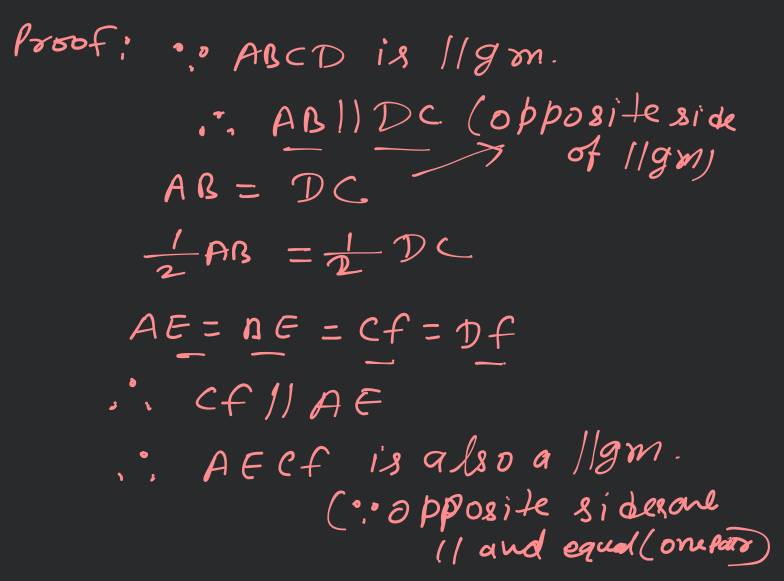 Proof: ∵ ABCD is //gm.
∴ AB || DC (opposite side
of //gm)
AB = DC
1/2 AB = 1/2 DC
AE = BE = Cf = Df
∴ Cf // AE
∴ AECf is also a //gm.
(∵ opposite sides are
// and equal (one pair)